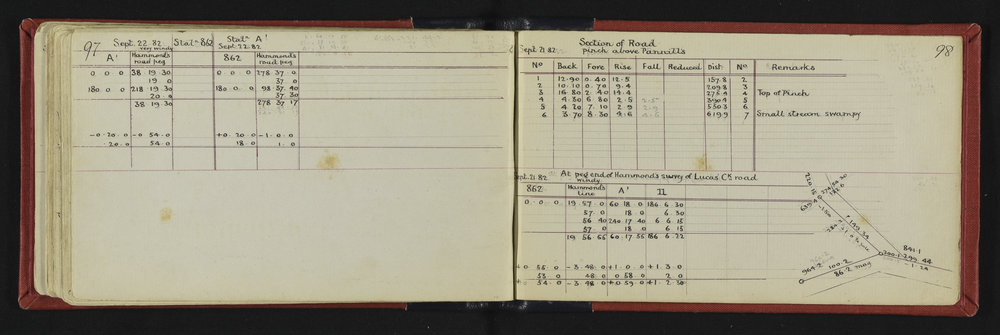 97
Sept. 22. 82 very windy Statn 862 Statn A' Sept. 22. 82
A' Hammonds road peg 862 Hammonds road peg
0 0 0 38 19 30 0 0 0 278 37 0
19 0 37 0
180 0 0 218 19 30 180 0 0 98 37 40
20 0 37 30
38 19 30 278 37 17
-0. 20. 0 -0 54. 0 +0. 20. 0 -1. 0. 0
20. 0 54. 0 18. 0 1. 0
98
Sept 21 82 Section of Road
pinch above Pannitts
No Back Fore Rise Fall Reduced Dist No Remarks
1 12.90 0.40 12.5 157.8 2
2 10.10 0.70 9.4 209.8 3
3 16.80 2.40 14.4 275.4 4 Top of Pinch
4 4.30 6.80 2.5 5
5 4.20 7.10 2.9 530.3 6
6 3.70 8.30 4.6 619.9 7 Small stream swampy
Sept. 21. 82 At peg end of Hammond's survey of Lucas' Ck road
windy
862 Hammond's line A' II
0 0 0 19 57. 0 60 18 0 186 6 30
57. 0 18 0 6 30
56 40 240. 17 40 6 6 15
57. 0 18 0 6 15
19 56. 55 60. 17 55 186 6. 22
+0 55. 0 -3. 48. 0 +1. 0. 0 +1. 3 0
53. 0 48. 0 0 58. 0 2 0
+0 54. 0 -3 48. 0 +0 59 0 +1. 2. 30
199.34
841.1
299.44
-1.24
964.2 100.2
86.2 mag